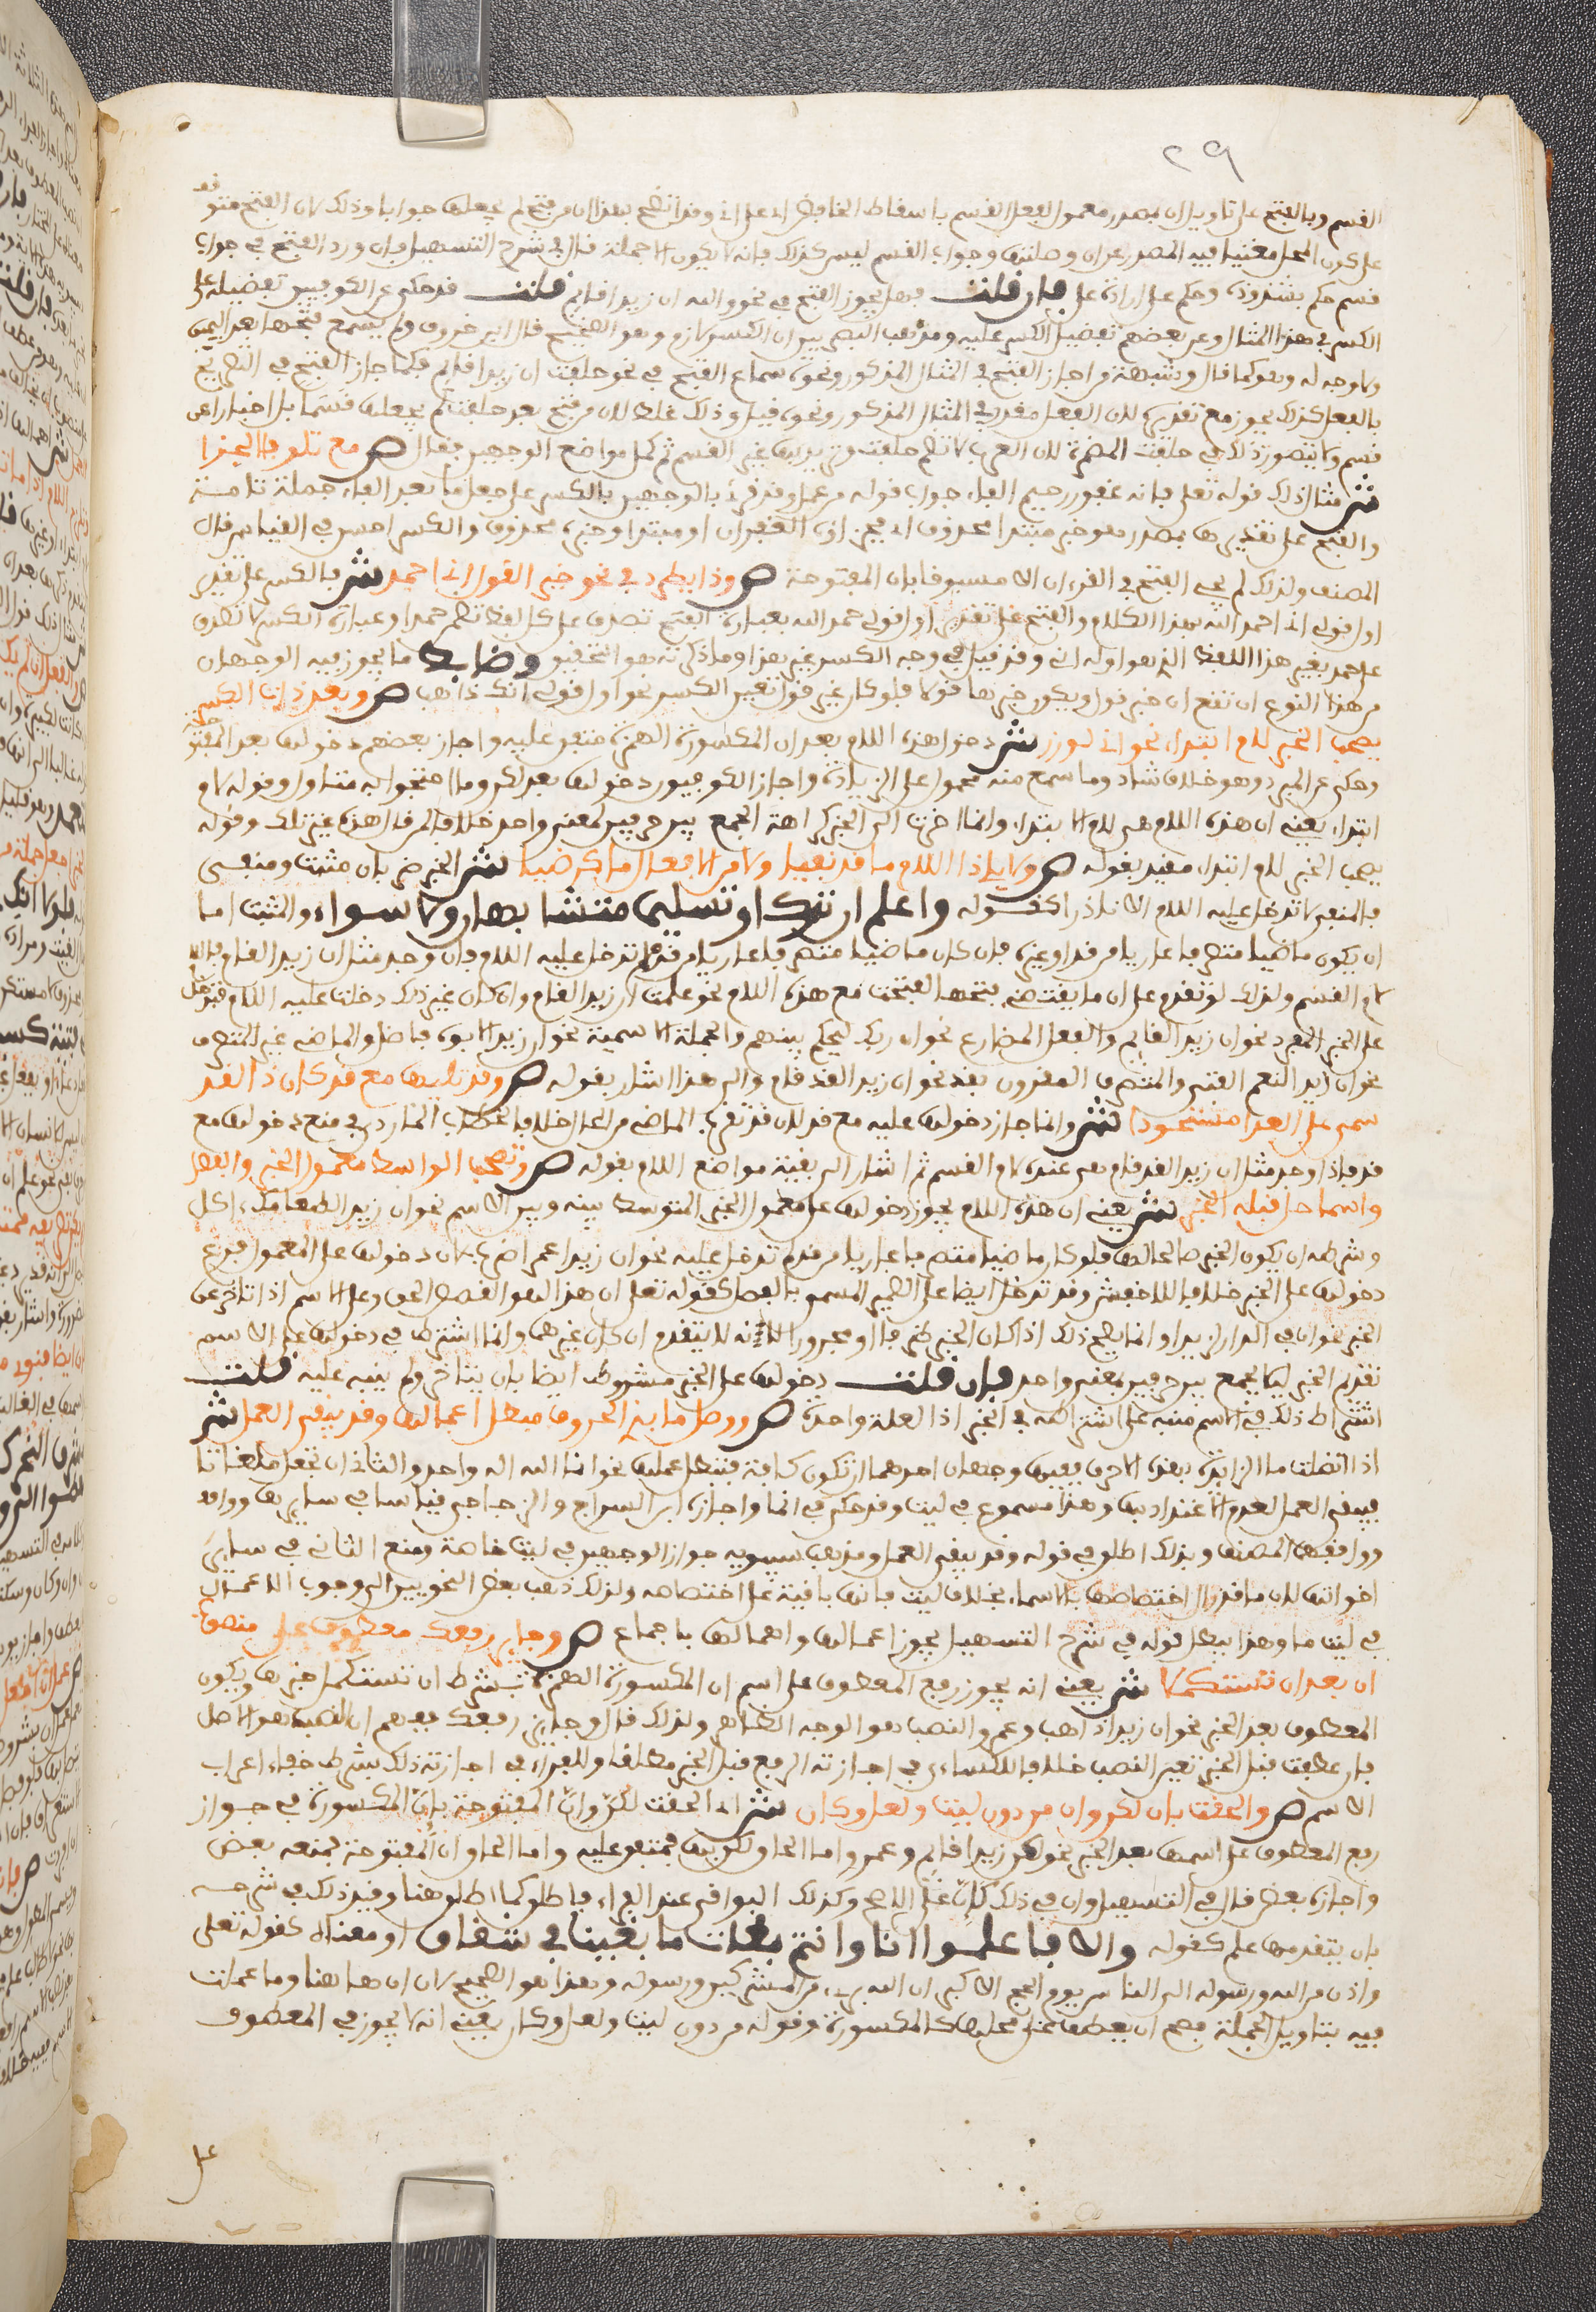 ٢٩
القسم وبالفتح على تاويل ان بمصدر معمول لفعل القسم باسقاط الخافض اي على اني وقد اتضح بهذا ان من فتح لم يجعلها جوابا وذلك لان الفتح متوقف
على كون المحل مغنيا فيه المصدر عن ان وصلتها وجواب القسم ليس كذلك فانه لا يكون الا جملة قال في شرح التسهيل فان ورد الفتح في جواب
قسم حكم بشذوذه وحكم على ارادة على فان قلت فهل يجوز الفتح في نحو والله ان زيدا قايم قلت قد حكي عن الكوفيين تفضيله على
الكسر في هذا المثال وعن بعضهم تفضيل الكسر عليه ومذهب البصريين ان الكسر لازم وهو الصحيح قال ابن خروف ولم يسمع فتحها بعد اليمين
ولا وجه له وهو كما قال وشبهة من اجاز الفتح في المثال المذكور ونحوه سماع الفتح في نحو حلفت ان زيدا قايم فكما جاز الفتح في التصريح
بالفعل كذلك يجوز مع تقديره لان الفعل مقدر في المثال المذكور ونحوه قيل وذلك غلط لان من فتح بعد حلفت لم يجعلها قسما بل اخبارا عن
قسم ولا يتصور ذلك في حلفت المضمرة لان العرب لا تضمر حلفت وتريد بها غير القسم ثم كمل مواضع الوجهين فقال ص مع تلو فا الجزا
ش مثال ذلك قوله تعلى فانه غفور رحيم الفاء جواب قوله من عمل وقد قرئ بالوجهين بالكسر على جعل ما بعد الفاء جملة تامة
والفتح على تقديرها بمصدر هو خبر مبتدا محذوف اي فجزاؤه الغفران او مبتدا وخبره محذوف والكسر احسن في القياس قال
المصنف ولذلك لم يجي الفتح في القرءان الا مسبوقا بان المفتوحة ص وذا يطرد في نحو خير القول اني احمد ش فالكسر على تقدير
اول قولي اني احمد الله بهذا الكلام والفتح على تقدير اول قولي حمد الله فعبارة الفتح تصدق على كل لفظ تضمن حمدا وعبارة الكسر لا تصدق
على حمد بغير هذا اللفظ الذي هو اوله اني وقد قيل في وجه الكسر غير هذا وما ذكرته هو التحقيق وضابط ما يجوز فيه الوجهان
من هذا النوع ان تقع ان خبر قول ويكون خبرها قولا فلو كان غير قول تعين الكسر نحو اول قولي انك ذاهب ص وبعد ذات الكسر
تصحب الخبر لام ابتداء نحو اني لوزر ش دخول هذه اللام بعد ان المكسورة الهمزة متفق عليه واجاز بعضهم دخولها بعد المفتوحة
وحكي عن المبرد وهو خلاف شاذ وما سمع منه محمول على الزيادة واجاز الكوفيون دخولها بعد لكن وما احتجوا به متاول وقوله لام
ابتداء يعني ان هذه اللام هي لام الابتداء وانما اخرت الى الخبر كراهة الجمع بين حرفين لمعنى واحد خلافا لمن قال هذه غير تلك وقوله
تصحب الخبر لام ابتداء مقيد بقوله ص ولا يلي ذا اللام ما قد نفيا ولا من الافعال ما كرضيا ش الخبر ضربان مثبت ومنفي
فالمنفي لا تدخل عليه اللام الا نادرا كقوله واعلم ان تركا وتسليما للا متشابهان ولا سواء والمثبت اما
ان يكون ماضيا متصرفا عاريا من قد او غيره فان كان ماضيا متصرفا عاريا من قد لم تدخل عليه اللام فان وجد مثل ان زيدا لقام فاللام
لام القسم ولذلك لو تقدم على ان ما يقتضي فتحها لفتحت مع هذه اللام نحو علمت ان زيدا لقام وان كان غير ذلك دخلت عليه اللام فتدخل
على الخبر المفرد نحو ان زيدا لقايم والفعل المضارع نحو ان ربك ليحكم بينهم والجملة الاسمية نحو ان زيدا لابوه فاضل والماضي غير المتصرف
نحو ان زيدا لنعم الفتى والمتصرف المقرون بقد نحو ان زيدا لقد قام والى هذا اشار بقوله ص وقد تليها مع قد كان ذا لقد
سمى على العدا مستحوذا ش وانما جاز دخولها عليه مع قد لان قد تقرب الماضي من الحال خلافا لخطاب الماردي في منع دخولها مع
قد فاذا وجد مثل ان زيدا لقد قام فهي عنده لام القسم ثم اشار الى بقية مواضع اللام بقوله ص وتصحب الواسط معمول الخبر والفصل
واسما حل قبله الخبر ش يعني ان هذه اللام يجوز دخولها على معمول الخبر المتوسط بينه وبين الاسم نحو ان زيدا لطعامك ءاكل
وشرطه ان يكون الخبر صالحا لها فلو كان ماضيا متصرفا عاريا من قد لم تدخل عليه نحو ان زيدا عمرا ضرب لان دخولها على المعمول فرع
دخولها على الخبر خلافا للاخفش وقد تدخل ايضا على الضمير المسمى بالفصل كقوله تعلى ان هذا لهو القصص الحق وعلى الاسم اذا تاخر عن
الخبر نحو ان في الدار لزيدا وانما يصح ذلك اذا كان الخبر ظرفا او مجرورا لانه لا يتقدم ان كان غيرهما وانما اشترط في دخولها على الاسم
تقدم الخبر ليلا يجمع بين حرفين لمعنى واحد فان قلت دخولها على الخبر مشروط ايضا بان يتاخر ولم ينبه عليه قلت
اشتراط ذلك في الاسم منبه على اشتراطه في الخبر اذ العلة واحدة ص ووصل ما بذي الحروف مبطل اعمالها وقد يبقى العمل ش
اذا اتصلت ما الزايدة بهذه الاحرف ففيها وجهان احدهما ان تكون كافة فتبطل عملها نحو انما الله اله واحد والثاني ان تجعل ملغاة
فيبقى العمل لعدم الاعتداد بها وهذا مسموع في ليت وقد حكي في انما واجازه ابن السراج والزجاجي قياسا في سايرها ووافقه
ووافقهما المصنف ولذلك اطلق في قوله وقد يبقى العمل ومذهب سيبويه جواز الوجهين في ليت خاصة ومنع الثاني في ساير
اخواتها لان ما قد ازال اختصاصها بالاسماء بخلاف ليت فانها باقية على اختصاصها ولذلك ذهب بعض النحويين الى وجوب الاعمال
في ليت ما وهذا يبطل قوله في شرح التسهيل يجوز اعمالها واهمالها باجماع ص وجايز رفعك معطوفا على منصوب
ان بعد ان تستكملا ش يعني انه يجوز رفع المعطوف على اسم ان المكسورة الهمزة بشرط ان تستكمل خبرها ويكون
المعطوف بعد الخبر نحو ان زيدا ذاهب وعمرو والنصب هو الوجه الظاهر ولذلك قال وجايز رفعك ففهم ان النصب هو الاصل
فان عطفت قبل الخبر تعين النصب خلافا للكساءي في اجازته الرفع قبل الخبر مطلقا وللفراء في اجازته ذلك بشرط خفاء اعراب
الاسم ص والحقت بان لكن وان من دون ليت ولعل وكان ش اي الحقت لكن وان المفتوحة بان المكسورة في جواز
رفع المعطوف على اسمها بعد الخبر نحو لكن زيدا قايم وعمرو اما الحاق لكن بها فمتفق عليه واما الحاق ان المفتوحة فمنعه بعض
واجازه بعض قال في التسهيل وان في ذلك كان على الاصح وكذلك البواقي عند الفراء فاطلق كما اطلق هنا وقيد ذلك في شرحه
بان يتقدمها علم كقوله والا فاعلموا انا وانتم بغاة ما بقينا في شقاق او معناه كقوله تعلى
واذان من الله ورسوله الى الناس يوم الحج الاكبر ان الله بريء من المشركين ورسوله وهذا هو الصحيح لان ان هاهنا وما عملت
فيه بتاويل الجملة فصح ان يعطف على محلها كالمكسورة وقوله من دون ليت ولعل وكان يعني انه لا يجوز في المعطوف
على